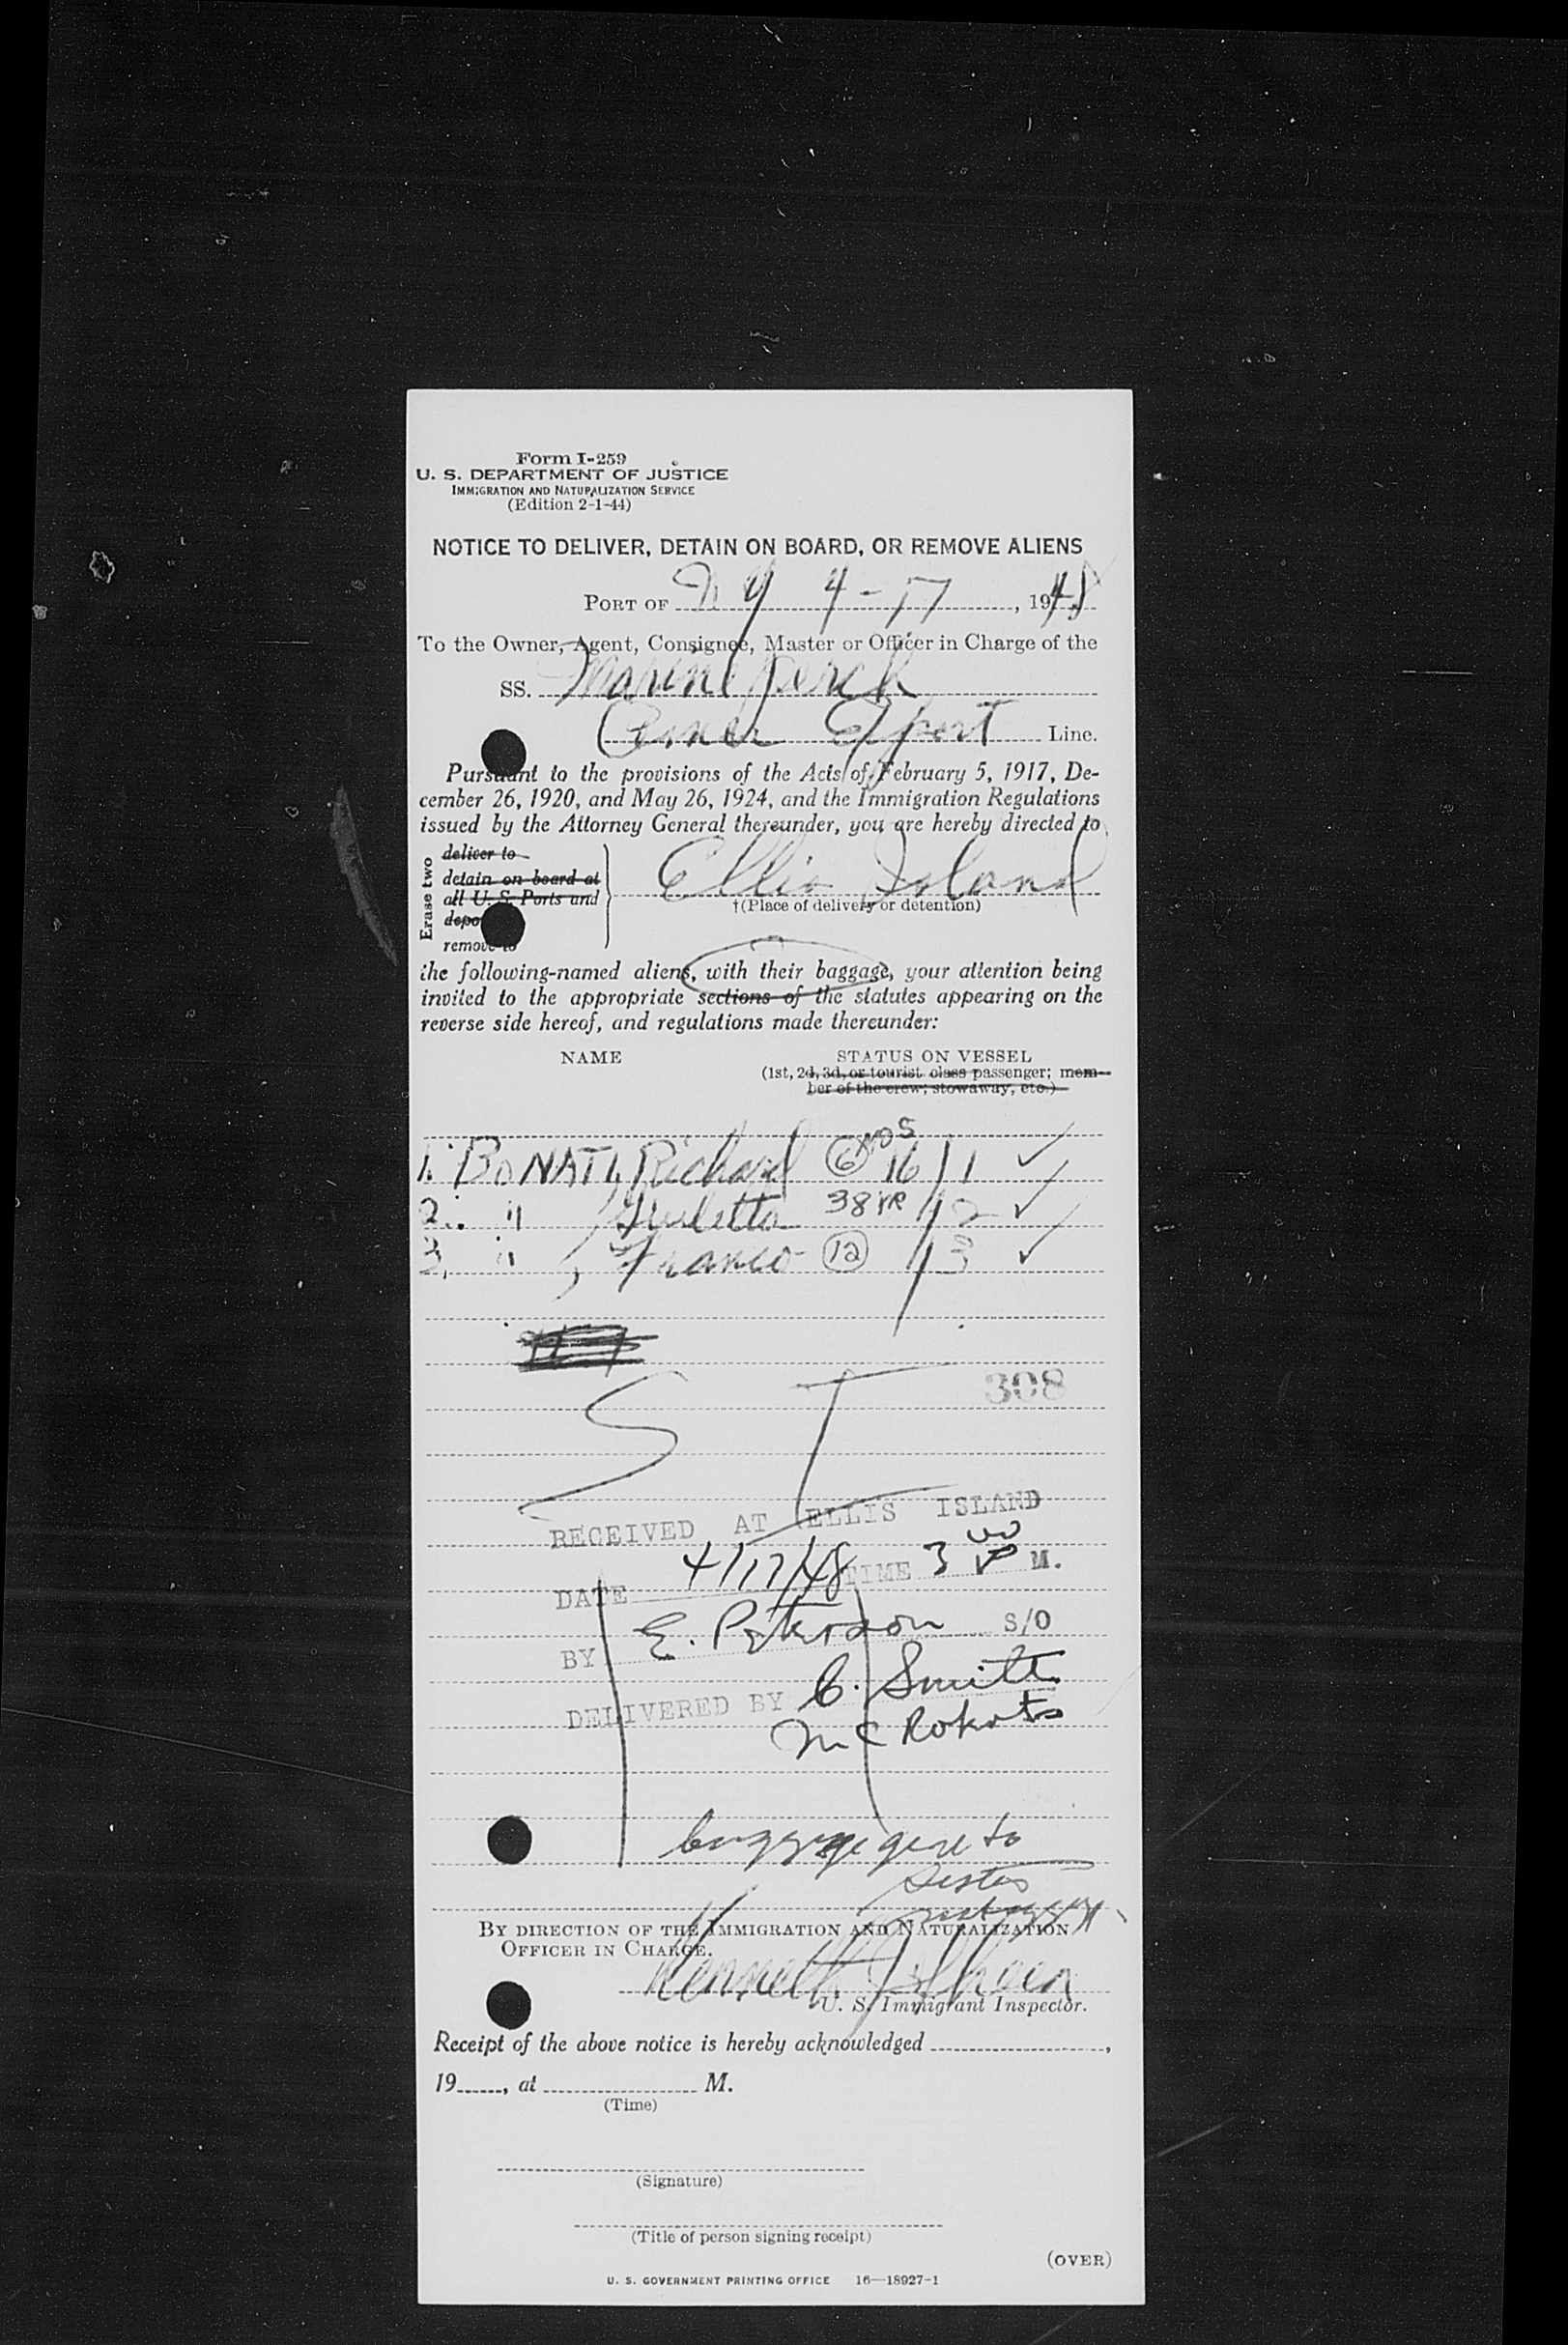 Form I-259
U. S. DEPARTMENT OF JUSTICE
IMMIGRATION AND NATURALIZATION SERVICE
(Edition 2-1-44)
NOTICE TO DELIVER, DETAIN ON BOARD, OR REMOVE ALIENS
PORT OF N Y 4-17, 1948
To the Owner, Agent, Consignee, Master or Officer in Charge of the
SS. Marine Perch
Amer Export Line.
Pursuant to the provisions of the Acts of February 5, 1917, De-
cember 26, 1920, and May 26, 1924, and the Immigration Regulations
issued by the Attorney General thereunder, you are hereby directed to
Erase two
deliver to
detain on board at
all U. S. Ports and
depo
remove to
Ellis Island
†(Place of delivery or detention)
the following-named aliens, with their baggage, your attention being
invited to the appropriate sections of the statutes appearing on the
reverse side hereof, and regulations made thereunder:
NAME STATUS ON VESSEL
(1st, 2d, 3d, or tourist class passenger; mem-
ber of the crew; stowaway, etc.)
1. BONATI, Richard 6 MOS 16/1 ✓
2. " , Giulietta 38 YR / 2 ✓
3. " , Franco 12 / 3 ✓
308
S T
RECEIVED AT ELLIS ISLAND
DATE 4/17/48 TIME 3 00 P M.
BY E. Peterson S/O
DELIVERED BY C. Smith
McRoberts
baggage gave to
sister
BY DIRECTION OF THE IMMIGRATION AND NATURALIZATION
OFFICER IN CHARGE.
Kenneth
U. S. Immigrant Inspector.
Receipt of the above notice is hereby acknowledged ,
19 , at M.
(Time)
(Signature)
(Title of person signing receipt)
(OVER)
U. S. GOVERNMENT PRINTING OFFICE 16—18927-1